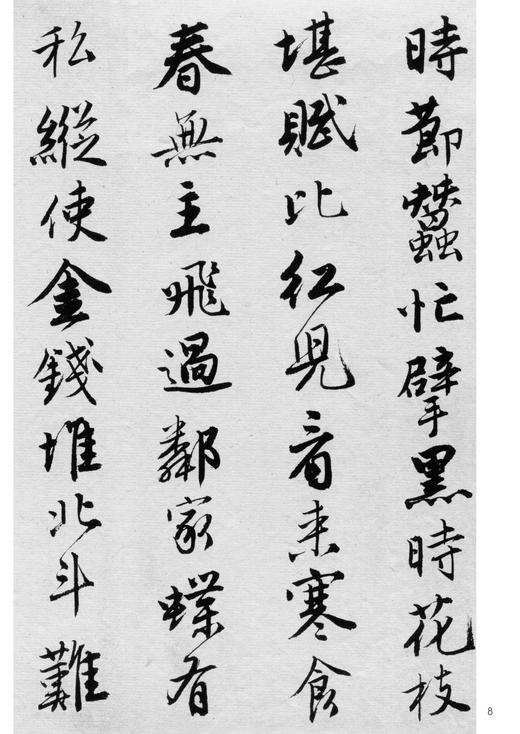 時節蠶忙擘黑時花枝
堪賦比紅兒看來寒食
春無主飛過鄰家蝶有
私縱使金錢堆北斗難
8